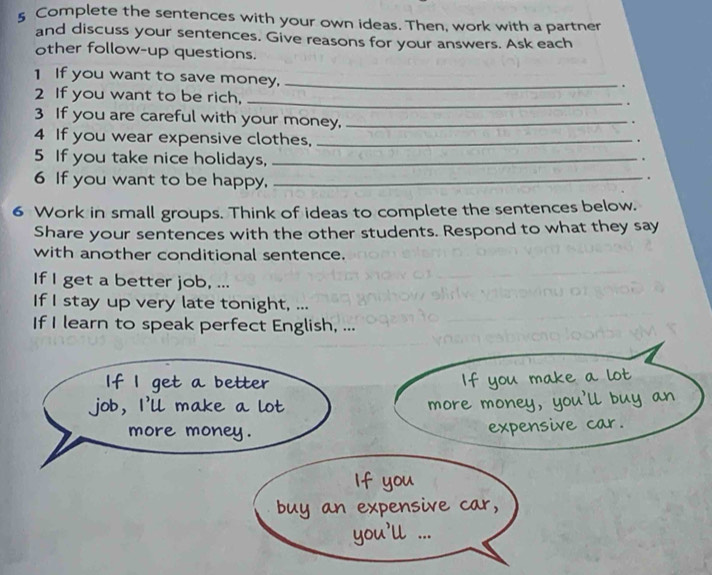 5 Complete the sentences with your own ideas. Then, work with a partner
and discuss your sentences. Give reasons for your answers. Ask each
other follow-up questions.
1 If you want to save money, ______.
2 If you want to be rich, ______.
3 If you are careful with your money, ______.
4 If you wear expensive clothes, ______.
5 If you take nice holidays, ______.
6 If you want to be happy, ______.
6 Work in small groups. Think of ideas to complete the sentences below.
Share your sentences with the other students. Respond to what they say
with another conditional sentence.
If I get a better job, ...
If I stay up very late tonight, ...
If I learn to speak perfect English, ...
If I get a better
job, I'll make a lot
more money.
If you make a lot
more money, you'll buy an
expensive car.
If you
buy an expensive car,
you'll ...